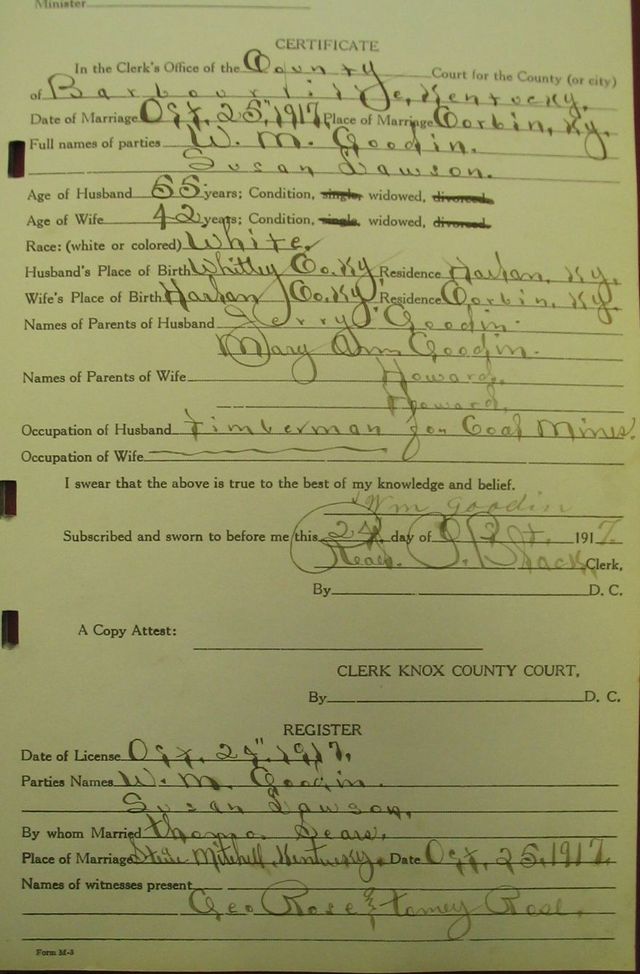 Minister
CERTIFICATE
In the Clerk's Office of the County Court for the County (or city)
of Barbourville, Kentucky.
Date of Marriage Oct, 25", 1917, Place of Marriage Corbin, Ky.
Full names of parties W. M. Goodin.
Susan Lawson.
Age of Husband 65 years; Condition, single, widowed, divorced.
Age of Wife 42 years; Condition, single, widowed, divorced.
Race: (white or colored) White,
Husband's Place of Birth Whitley Co. Ky Residence Harlan, Ky,
Wife's Place of Birth Harlan Co. Ky. Residence Corbin, Ky.
Names of Parents of Husband Jerry Goodin.
Mary Ann Goodin.
Names of Parents of Wife Howard,
Howard,
Occupation of Husband Timberman for Coal Mines.
Occupation of Wife
I swear that the above is true to the best of my knowledge and belief.
Wm Goodin
Subscribed and sworn to before me this 24, day of Oct. 1917.
Read. Black, Clerk,
By D. C.
A Copy Attest:
CLERK KNOX COUNTY COURT,
By D. C.
REGISTER
Date of License Oct, 24", 1917,
Parties Names W. M. Goodin.
Susan Lawson,
By whom Married Sears,
Place of Marriage Mitchell, Kentucky, Date Oct, 25, 1917.
Names of witnesses present
Geo Rose & Tomey Rose.
Form M-3